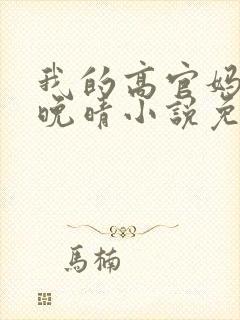 我的高官妈
晚晴小说免
馬楠